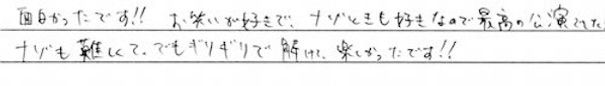 面白かったです!! お笑いが好きで、ナゾときも好きなので最高の公演でした
ナゾも難しくて、でもギリギリで解けて、楽しかったです!!